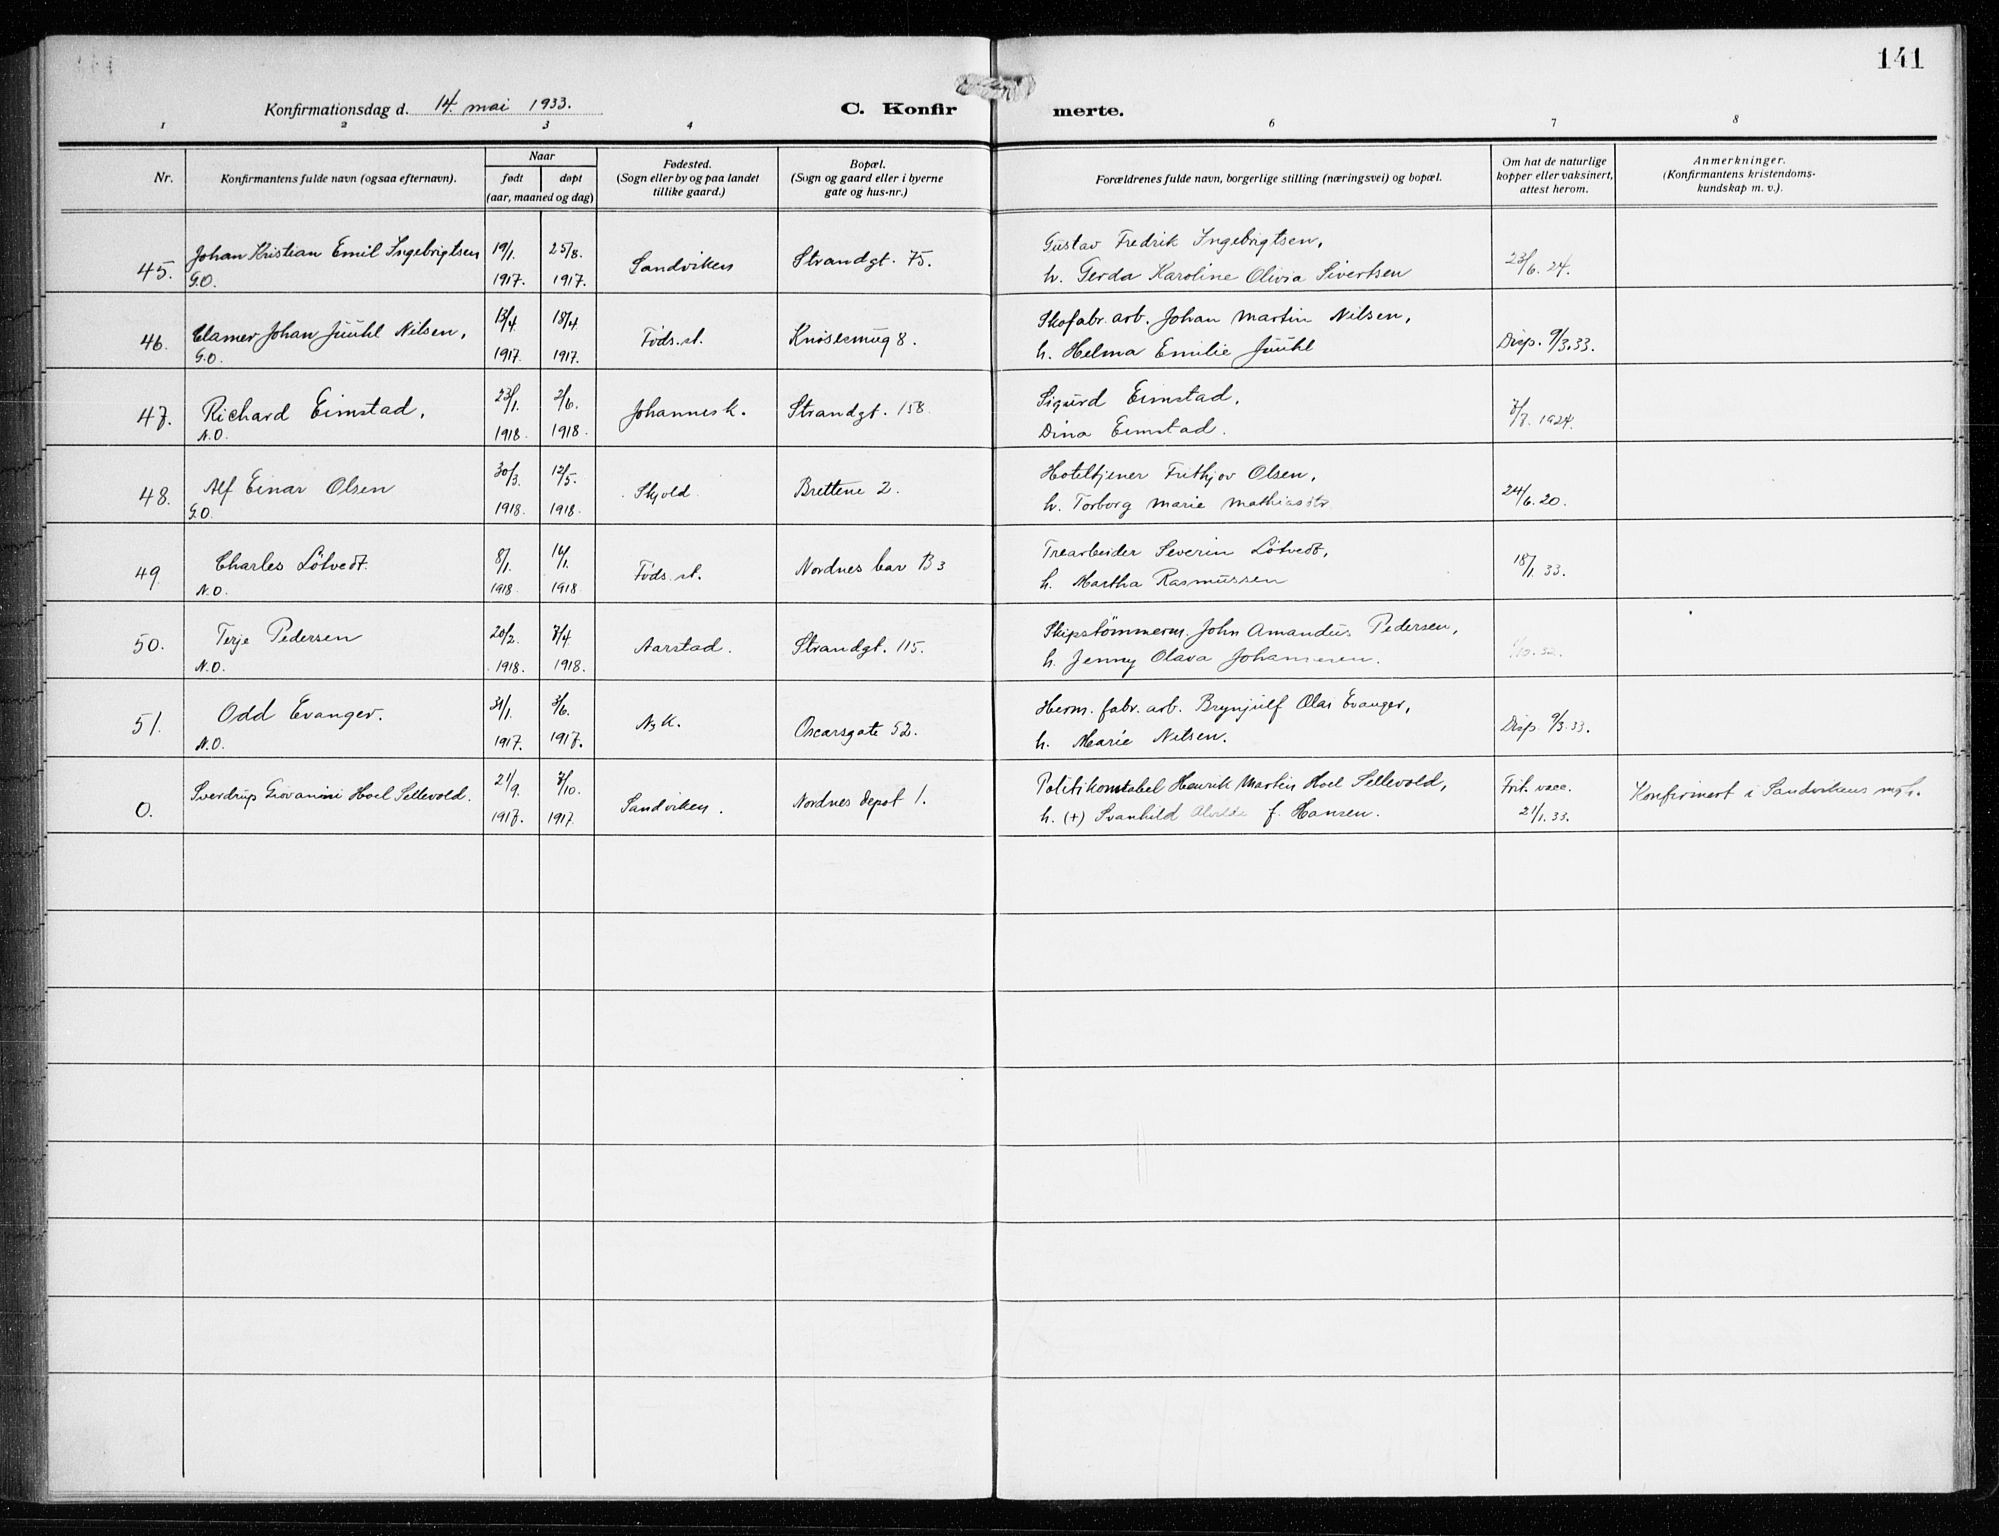 141
Konfirmationsdag d. 14. mai 1933.
C. Konfirmerte.
1 2 3 4 6 7 8
Nr.
Konfirmantens fulde navn (ogsaa efternavn).
Naar
født døpt
(aar, maaned og dag)
Fødested.
(Sogn eller by og paa landet
tillike gaard.)
Bopæl.
(Sogn og gaard eller i byerne
gate og hus-nr.)
Forældrenes fulde navn, borgerlige stilling (næringsvei) og bopæl.
Om hat de naturlige
kopper eller vaksinert,
attest herom.
Anmerkninger.
(Konfirmantens kristendoms-
kundskap m. v.).
Johan Kristian Emil Ingebrigtsen 19/1. 25/8. Gustav Fredrik Ingebrigtsen,
45. G.O. 1917. 1917. Sandviken Strandgt. 75. h. Gerda Karoline Olivia Sivertsen 23/6. 24.
Elamer Johan Juuhl Nilsen, 13/4 18/4 Skofabr. arb. Johan Martin Nilsen,
46. G.O. 1917. 1917. Føds. st. Knøsesmug 8. h. Helma Emilie Juuhl Disp. 9/3.33.
Richard Eimstad, 23/1. 2/6. Sigurd Eimstad,
47. N.O. 1918. 1918. Johannesk. Strandgt. 158. Dina Eimstad. 7/7. 1924.
Alf Einar Olsen 30/3. 12/5. Hoteltjener Frithjov Olsen,
48. G.O 1918. 1918. Skjold. Brettene 2. h. Torborg Marie Mathiasdtr. 24/6. 20.
Charles Lötvedt. 8/1. 16/1. Trearbeider Severin Lötvedt,
49 N.O. 1918 1918 Føds. st. Nordnes bar B3 h. Martha Rasmussen 18/1. 33.
Terje Pedersen 20/2. 7/4. Skipstømmerm. John Amandus Pedersen,
50. N.O. 1918. 1918. Aarstad. Strandgt. 115. h. Jenny Olava Johannesen. 1/10. 32.
Odd Evanger. 31/1. 3/6. Herm. fabr. arb. Brynjulf Olai Evanger,
51. N.O. 1917. 1917. Nyk. Oscarsgate 52. h. Marie Nilsen. Disp. 9/3.33.
Sverdrup Giovanini Hoel Sellevold. 21/9. 7/10. Politikonstabel Henrik Martin Hoel Sellevold, Frit. vacc.
0. 1917. 1917. Sandviken. Nordnes depot 1. h. (+) Svanhild Alvilde f. Hansen. 21/1. 33. Konfirmert i Sandvikens mgh.